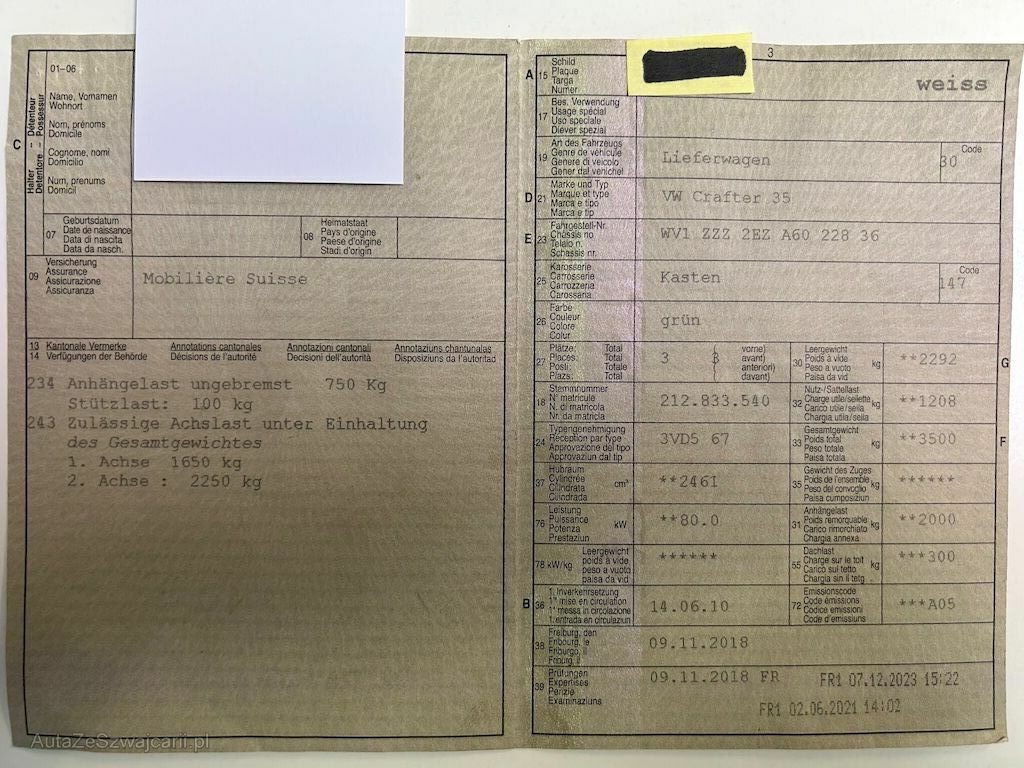 01-06
Name, Vornamen
Wohnort
Nom, prénoms
Domicile
Cognome, nomi
Domicilio
Num, prenums
Domicil
C
Halter – Détenteur
Detentore – Possessur
07
Geburtsdatum
Date de naissance
Data di nascita
Data da nasch.
08
Heimatstaat
Pays d'origine
Paese d'origine
Stadi d'origin
09
Versicherung
Assurance
Assicurazione
Assicuranza
Mobilière Suisse
13 Kantonale Vermerke Annotations cantonales Annotazioni cantonali Annotaziuns chantunalas
14 Verfügungen der Behörde Décisions de l'autorité Decisioni dell'autorità Disposiziuns da l'autoritad
234 Anhängelast ungebremst 750 Kg
Stützlast: 100 kg
243 Zulässige Achslast unter Einhaltung
des Gesamtgewichtes
1. Achse 1650 kg
2. Achse : 2250 kg
3
A 15
Schild
Plaque
Targa
Numer
weiss
17
Bes. Verwendung
Usage spécial
Uso speciale
Diever spezial
19
Art des Fahrzeugs
Genre de véhicule
Genere di veicolo
Gener dal vehichel
Lieferwagen
Code
30
D 21
Marke und Typ
Marque et type
Marca e tipo
Marca e tip
VW Crafter 35
E 23
Fahrgestell-Nr.
Châssis no
Telaio n.
Schassis nr.
WV1 ZZZ 2EZ A60 228 36
25
Karosserie
Carrosserie
Carrozzeria
Carossaria
Kasten
Code
147
26
Farbe
Couleur
Colore
Colur
grün
27
Plätze: Total
Places: Total
Posti: Totale
Plazs: Total
3 3
vorne)
avant)
anteriori)
davant)
30
Leergewicht
Poids à vide
Peso a vuoto
Paisa da vid
kg
**2292
G
18
Stammnummer
N° matricule
N. di matricola
Nr. da matricla
212.833.540
32
Nutz-/Sattellast
Charge utile/sellette
Carico utile/sella
Chargia utila/sella
kg
**1208
24
Typengenehmigung
Réception par type
Approvazione del tipo
Approvaziun dal tip
3VD5 67
33
Gesamtgewicht
Poids total
Peso totale
Paisa totala
kg
**3500
F
37
Hubraum
Cylindrée
Cilindrata
Cilindrada
cm³
**2461
35
Gewicht des Zuges
Poids de l'ensemble
Peso del convoglio
Paisa cumposiziun
kg
******
76
Leistung
Puissance
Potenza
Prestaziun
kW
**80.0
31
Anhängelast
Poids remorquable
Carico rimorchiato
Chargia annexa
kg
**2000
78 kW/kg
Leergewicht
poids à vide
peso a vuoto
paisa da vid
******
55
Dachlast
Charge sur le toit
Carico sul tetto
Chargia sin il tetg
kg
***300
B 36
1. Inverkehrsetzung
1re mise en circulation
1a messa in circolazione
1. entrada en circulaziun
14.06.10
72
Emissionscode
Code émissions
Codice emissioni
Code d'emissiuns
***A05
38
Freiburg, den
Fribourg, le
Friburgo, il
Friburg, il
09.11.2018
39
Prüfungen
Expertises
Perizie
Examinaziuns
09.11.2018 FR
FR1 07.12.2023 15:22
FR1 02.06.2021 14:02
AutaZeSzwajcarii.pl